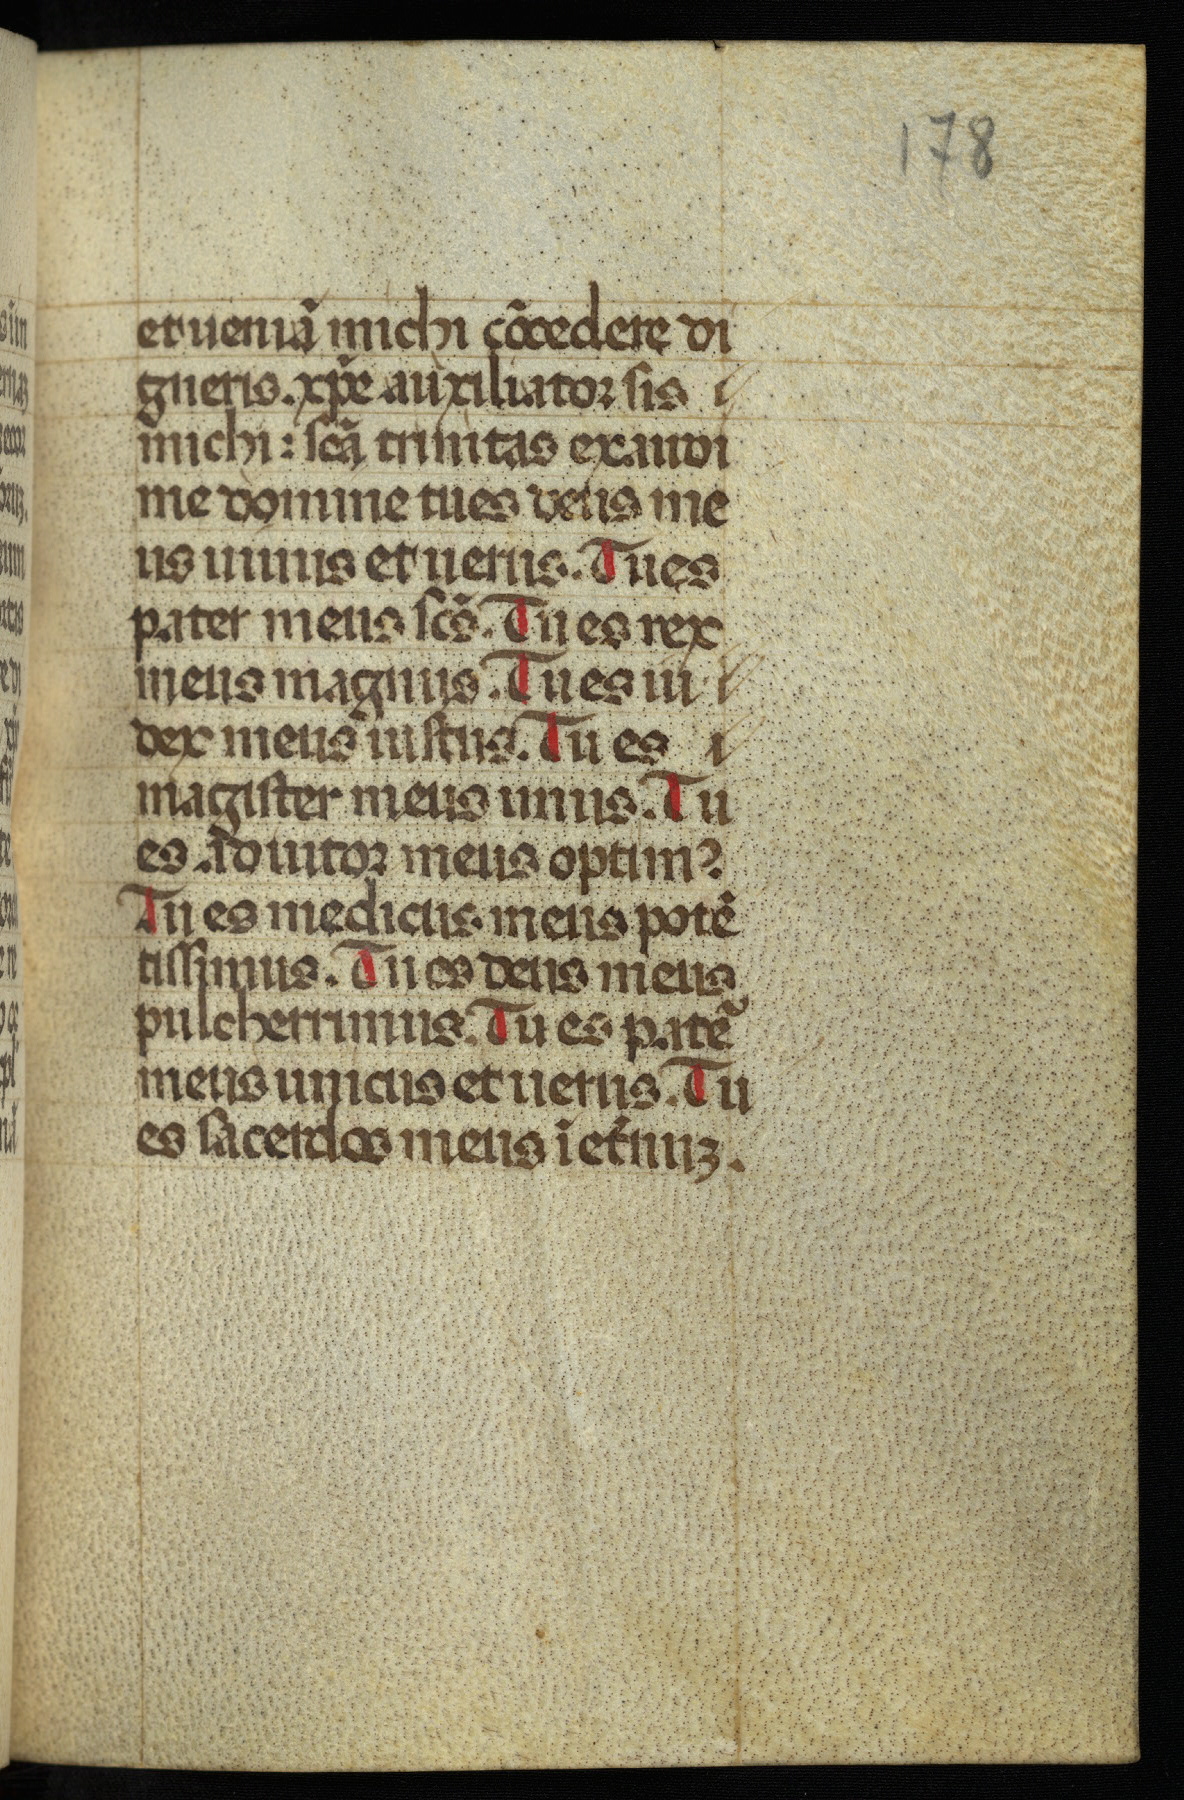 178
et ueniā michi cōcedere di
gneris. xp̄e auxiliator sis
michi: scā trinitas exaudi
me domine tu es deus me
us uiuus et uerus. Tu es
pater meus scs̄. Tu es rex
meus magnus. Tu es iu
dex meus iustus. Tu es
magister meus unus. Tu
es adiutor meus optim᷒
Tu es medicus meus potē
tissimus. Tu es deus meus
pulcherrimus. Tu es
meus unicus et uerus. Tu
es sacerdos meus ī et̄nuȝ.